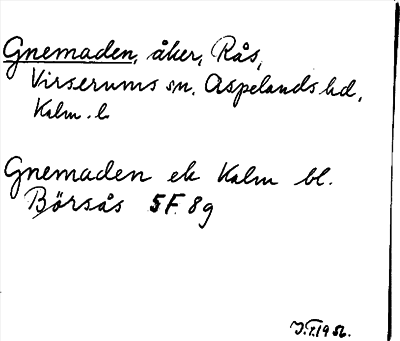 Gnemaden, åker, Rås,
Virserums sn, Aspelands hd,
Kalm. l.
Gnemaden ek Kalm bl.
Börsås 5F 8g
J.I.1956.